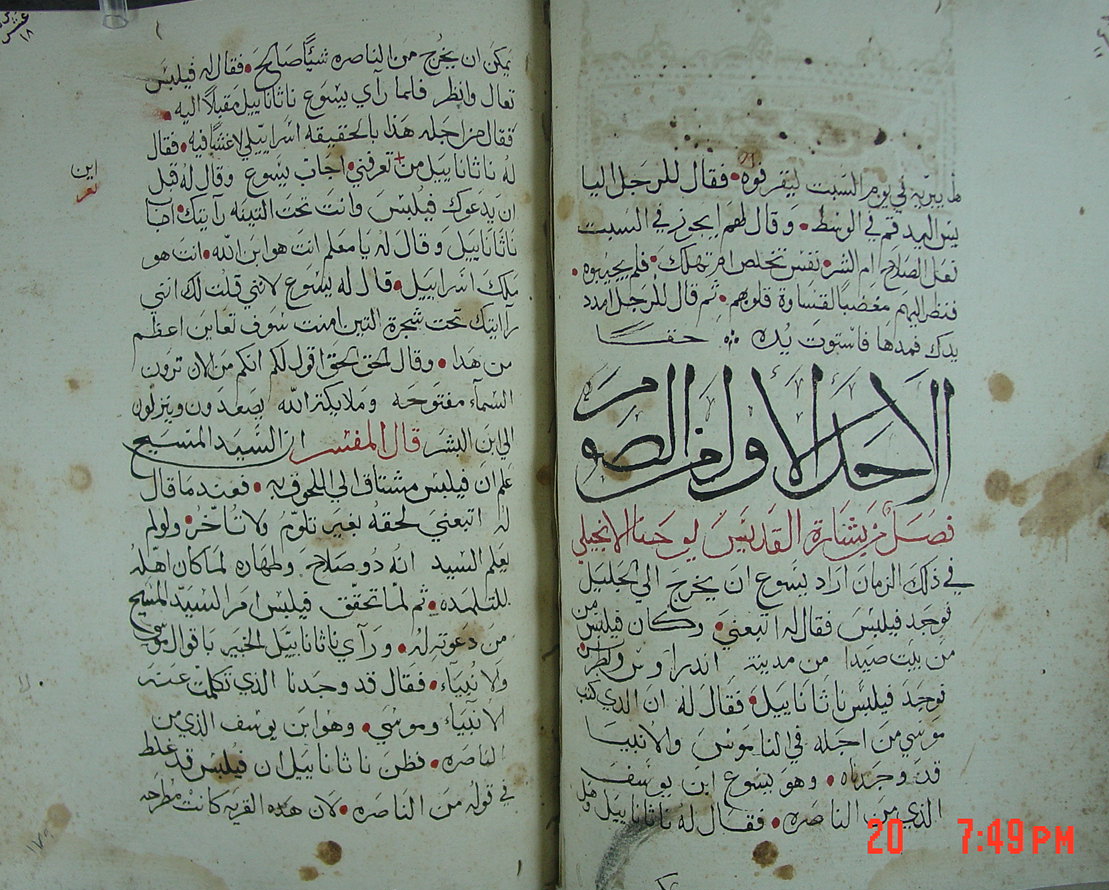 يديه في يوم السبت ليقرفوه فقال للرجل اليا
بس اليد قم في الوسط وقال لهم ايجوز في السبت
تعمل الصلاح ام الشر نفس تخلص ام تهلك فلم يجيبوه
فنظر اليهم مغضبًا لقساوة قلوبهم ثم قال للرجل امدد
يدك فمدها فاستوت يده حقًا
الاحد الاول من الصوم
فصل من بشارة القديس يوحنا الانجيلي
في ذلك الزمان اراد يسوع ان يخرج الي الجليل
فوجد فيلبس فقال له اتبعني وكان فيلبس من
من بيت صيدا من مدينة اندراوس وبطرس
فوجد فيلبس ناثاناييل فقال له ان الذي كتب
موسي من اجله في الناموس والانبيا
قد وجدناه وهو يسوع ابن يوسف
الذي من الناصره فقال له ناثاناييل وهل
يمكن ان يخرج من الناصره شيًا صالح فقال له فيلبس
تعال وانظر فلما رآي يسوع ناثاناييل مقبلاً اليه
فقال من اجله هذا بالحقيقه اسراييلي لاغش فيه فقال
له ناثاناييل من تعرفني اجاب يسوع وقال له قبل
اين
ان يدعوك فيلبس وانت تحت التينه رآيتك اجاب
ناثاناييل وقال له يا معلم انت هو ابن الله انت هو
ملك اسراييل قال له يسوع لانني قلت لك انني
رآيتك تحت شجرة التين امنت سوف تعاين اعظم
من هذا وقال الحق الحق اقول لكم انكم من الان ترون
السمآء مفتوحه وملايكة الله يصعدون وينزلون
الي ابن البشر قال المفسر ان السيد المسيح
علم ان فيلبس مشتاق الي اللحوق به فعندما قال
له اتبعني لحقه بغير تلوّم ولا تأخر ولو لم
يعلم السيد انه ذو صلاح وطهاره لما كان اهله
للتلمذه ثم لما تحقق فيلبس امر السيد المسيح
من دعوته له ورآي ناثاناييل الخبير باقوال موسي
والانبيآء فقال قد وجدنا الذي تكلمت عنه
الانبيآء وموسي وهو ابن يوسف الذي من
الناصره فظن ناثاناييل ان فيلبس قد غلط
في قوله من الناصره لان هذه القريه كانت مطرحه
20 7:49 PM